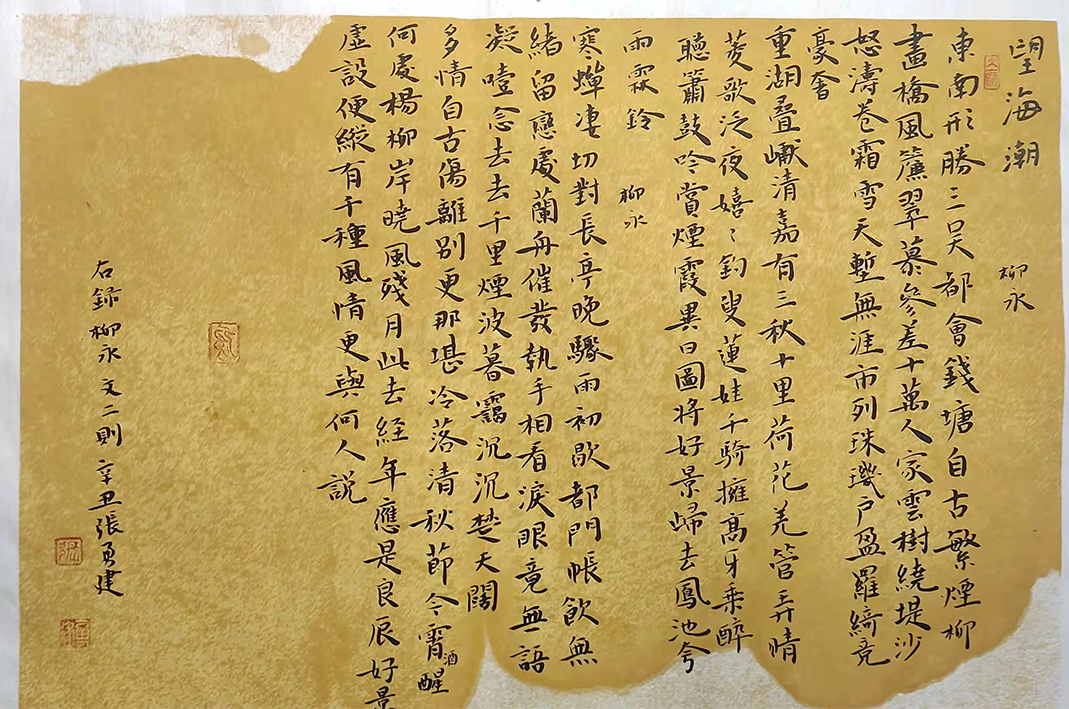 望海潮 柳永
東南形勝三吴都會錢塘自古繁煙柳
畫橋風簾翠慕參差十萬人家雲樹繞堤沙
怒濤卷霜雪天塹無涯市列珠璣户盈羅綺竞
豪奢
重湖叠巘清嘉有三秋十里荷花羌管弄晴
菱歌泛夜嬉〻釣叟蓮娃千騎擁高牙乘醉
聽簫鼓吟賞煙霞異日圖將好景歸去鳳池夸
雨霖鈴 柳永
寒蟬凄切對長亭晚驟雨初歇都門帳飲無
緒留戀處蘭舟催發執手相看淚眼竟無語
凝噎念去去千里煙波暮靄沉沉楚天闊
多情自古傷離别更那堪冷落清秋節今宵酒醒
何處楊柳岸曉風殘月此去経年應是良辰好景
虛設便縱有千種風情更與何人説
右錄柳永文二則辛丑張勇建